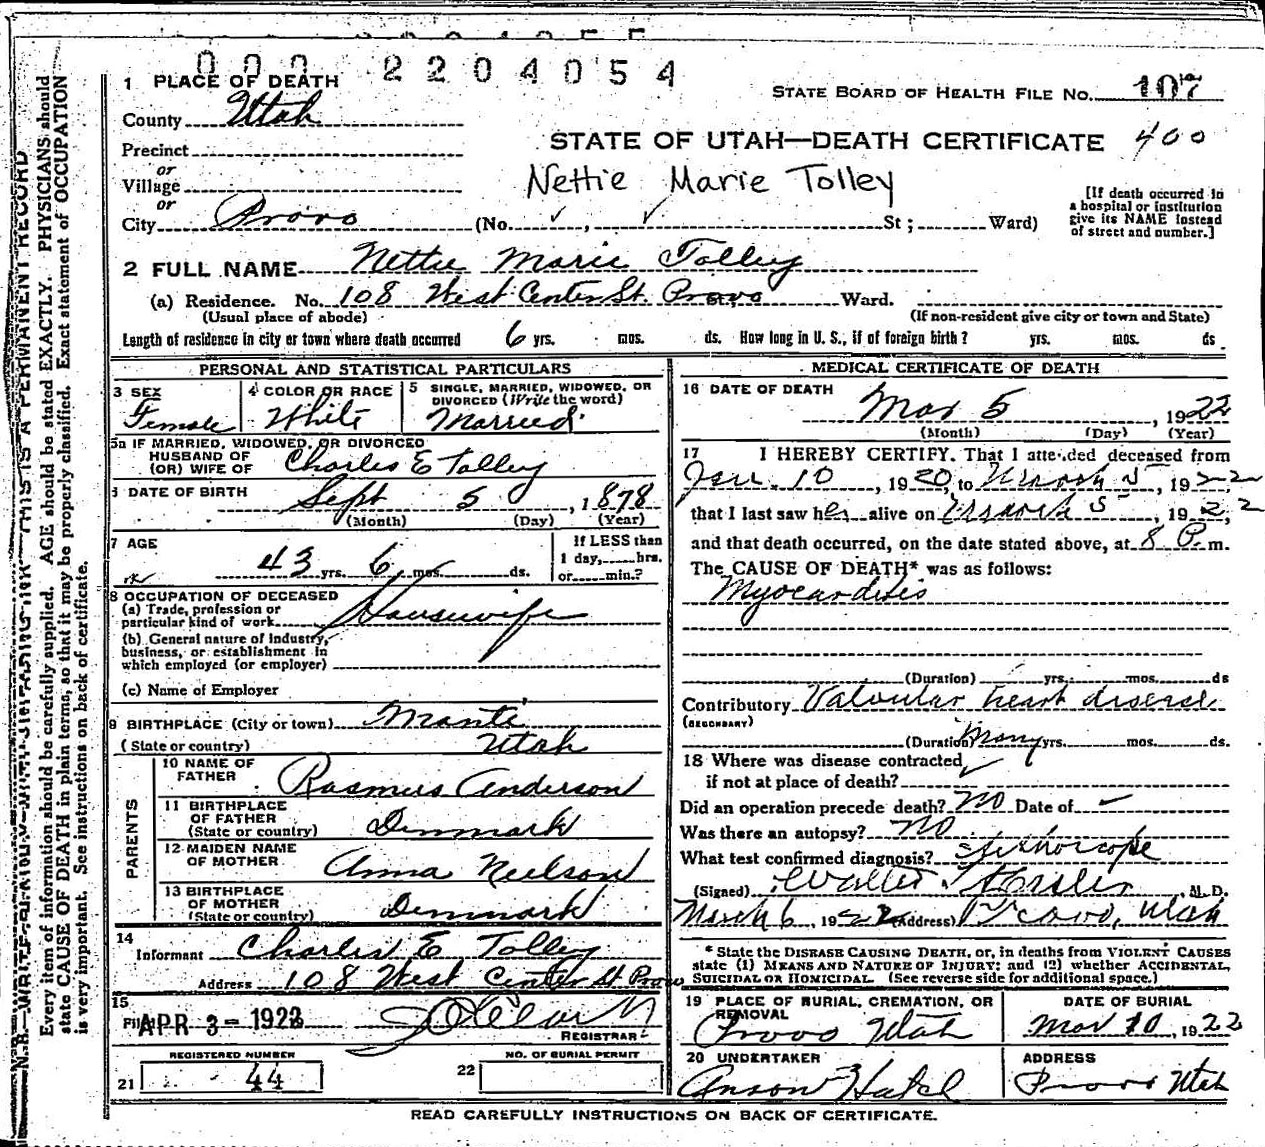 000 2204054
1 PLACE OF DEATH
STATE BOARD OF HEALTH FILE No. 107
County Utah
STATE OF UTAH—DEATH CERTIFICATE 400
Precinct
or
Village
Nettie Marie Tolley
or
City Provo (No. , St ; Ward)
[If death occurred in
a hospital or institution
give its NAME instead
of street and number.]
2 FULL NAME Nettie Marie Tolley
(a) Residence. No. 108 West Center St. Provo Ward.
(Usual place of abode) (If non-resident give city or town and State)
Length of residence in city or town where death occurred 6 yrs. mos. ds. How long in U. S., if of foreign birth? yrs. mos. ds.
PERSONAL AND STATISTICAL PARTICULARS
3 SEX
Female
4 COLOR OR RACE
White
5 SINGLE, MARRIED, WIDOWED, OR
DIVORCED (Write the word)
Married
5a IF MARRIED, WIDOWED, OR DIVORCED
HUSBAND OF
(OR) WIFE OF Charles E Tolley
6 DATE OF BIRTH Sept 5, 1878
(Month) (Day) (Year)
7 AGE
43 yrs. 6 mos. ds.
If LESS than
1 day, hrs.
or min.?
8 OCCUPATION OF DECEASED
(a) Trade, profession or
particular kind of work Housewife
(b) General nature of Industry,
business, or establishment in
which employed (or employer)
(c) Name of Employer
9 BIRTHPLACE (City or town) Manti
(State or country) Utah
PARENTS
10 NAME OF
FATHER Rasmus Anderson
11 BIRTHPLACE
OF FATHER
(State or country) Denmark
12 MAIDEN NAME
OF MOTHER Anna Neilson
13 BIRTHPLACE
OF MOTHER
(State or country) Denmark
14
Informant Charles E Tolley
Address 108 West Center St Provo
15
Filed APR 3 - 1922
REGISTRAR
REGISTERED NUMBER
21 44
NO. OF BURIAL PERMIT
22
MEDICAL CERTIFICATE OF DEATH
16 DATE OF DEATH
Mar 5, 1922
(Month) (Day) (Year)
17 I HEREBY CERTIFY. That I attended deceased from
Jan. 10, 1920, to March 5, 1922
that I last saw her alive on March 5, 1922,
and that death occurred, on the date stated above, at 8 P. m.
The CAUSE OF DEATH* was as follows:
Myocarditis
(Duration) yrs. mos. ds
Contributory Valvular heart disease
(SECONDARY)
(Duration) Many yrs. mos. ds.
18 Where was disease contracted
if not at place of death?
Did an operation precede death? No Date of –
Was there an autopsy? No
What test confirmed diagnosis? Stethoscope
(Signed) Walter M. D.
March 6, 1922 (Address) Provo, Utah
* State the DISEASE CAUSING DEATH, or, in deaths from VIOLENT CAUSES
state (1) MEANS AND NATURE OF INJURY; and (2) whether ACCIDENTAL,
SUICIDAL OR HOMICIDAL. (See reverse side for additional space.)
19 PLACE OF BURIAL, CREMATION, OR
REMOVAL
Provo Utah
DATE OF BURIAL
Mar 10, 1922
20 UNDERTAKER
Anson Hatch
ADDRESS
Provo Utah
READ CAREFULLY INSTRUCTIONS ON BACK OF CERTIFICATE.
N. B.—WRITE PLAINLY, WITH UNFADING INK—THIS IS A PERMANENT RECORD
Every item of information should be carefully supplied. AGE should be stated EXACTLY. PHYSICIANS should
state CAUSE OF DEATH in plain terms, so that it may be properly classified. Exact statement of OCCUPATION
is very important. See instructions on back of certificate.